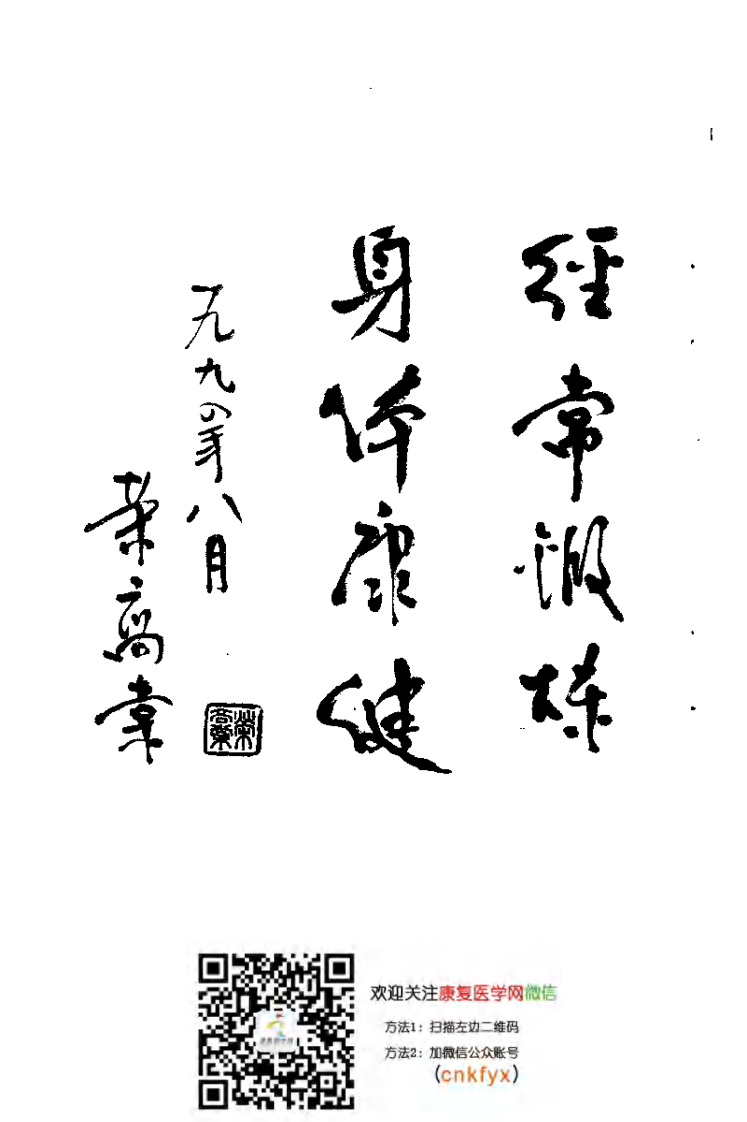 經常锻炼
身体康健
一九九〇年八月
荣高棠
荣高棠
欢迎关注康复医学网微信
方法1：扫描左边二维码
方法2：加微信公众账号
(cnkfyx)